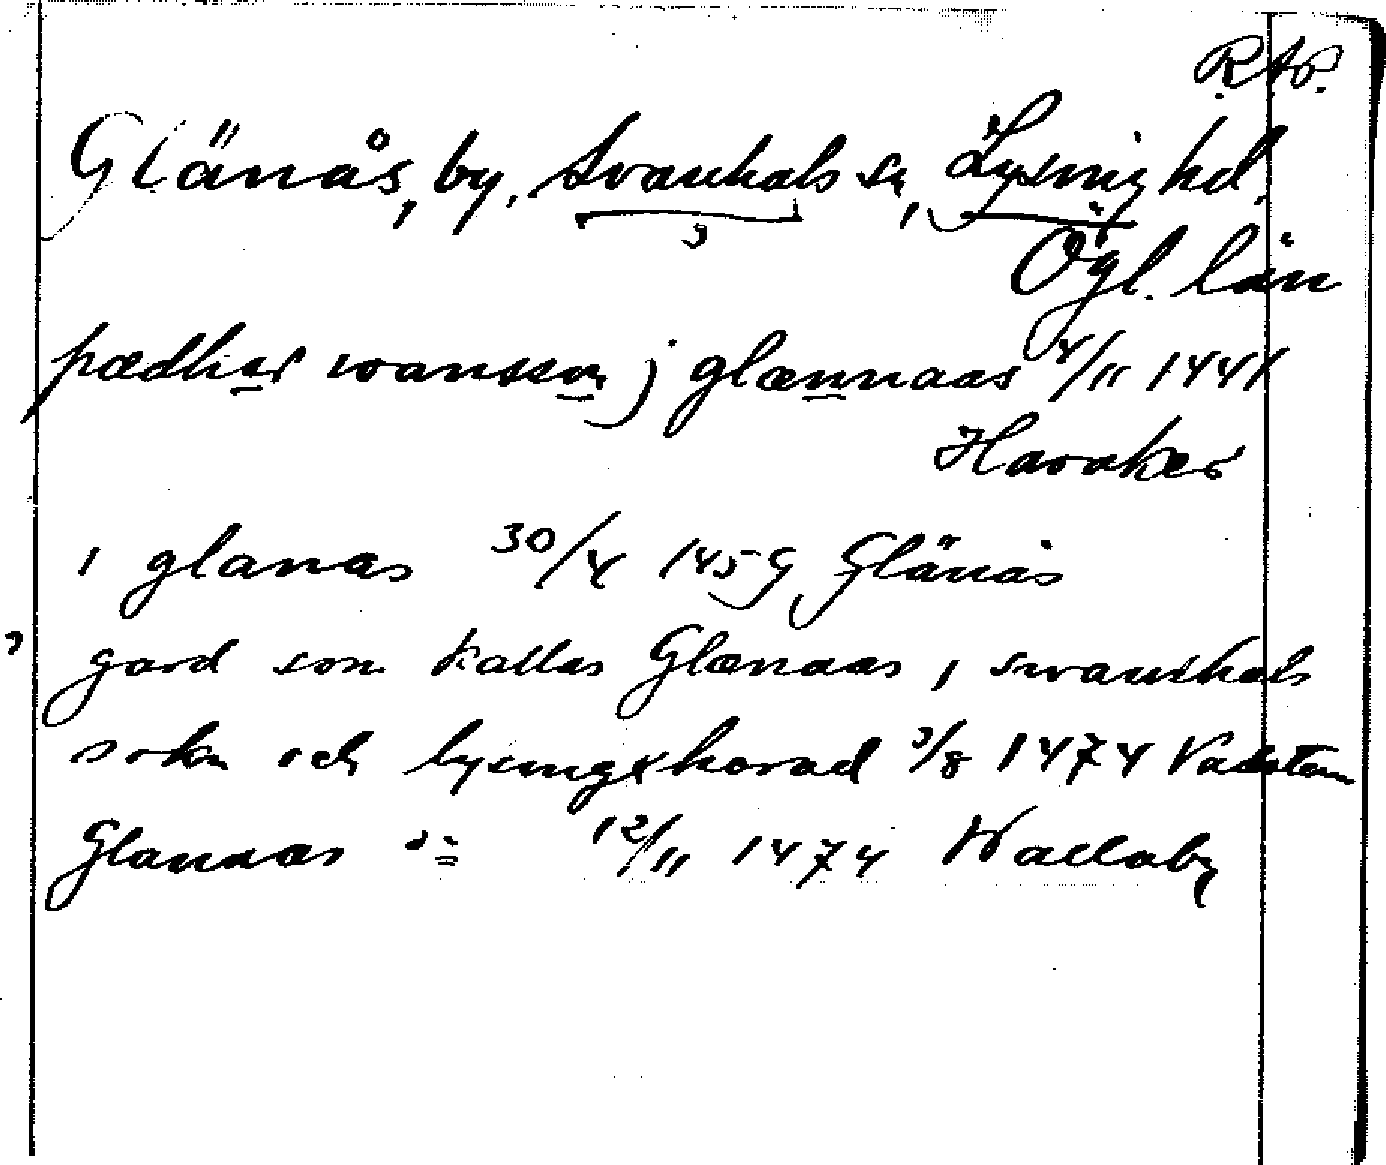 RAP.
Glänås, by, Svanhals sn, Lysings hd.
Ögl. län
pædher swansson j glænnaas 4/11 1441
Haraker
i glanas 30/4 1459 Glänås
gard som kallas Glænaas i swanshals
sokn och lysingxhærad 3/8 1474 Vadstena
Glanaas 12/11 1474 Wallaby